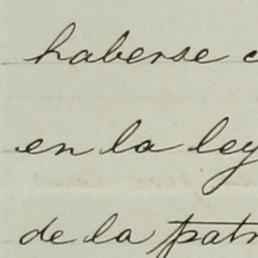 haberse
en la ley
de la patr